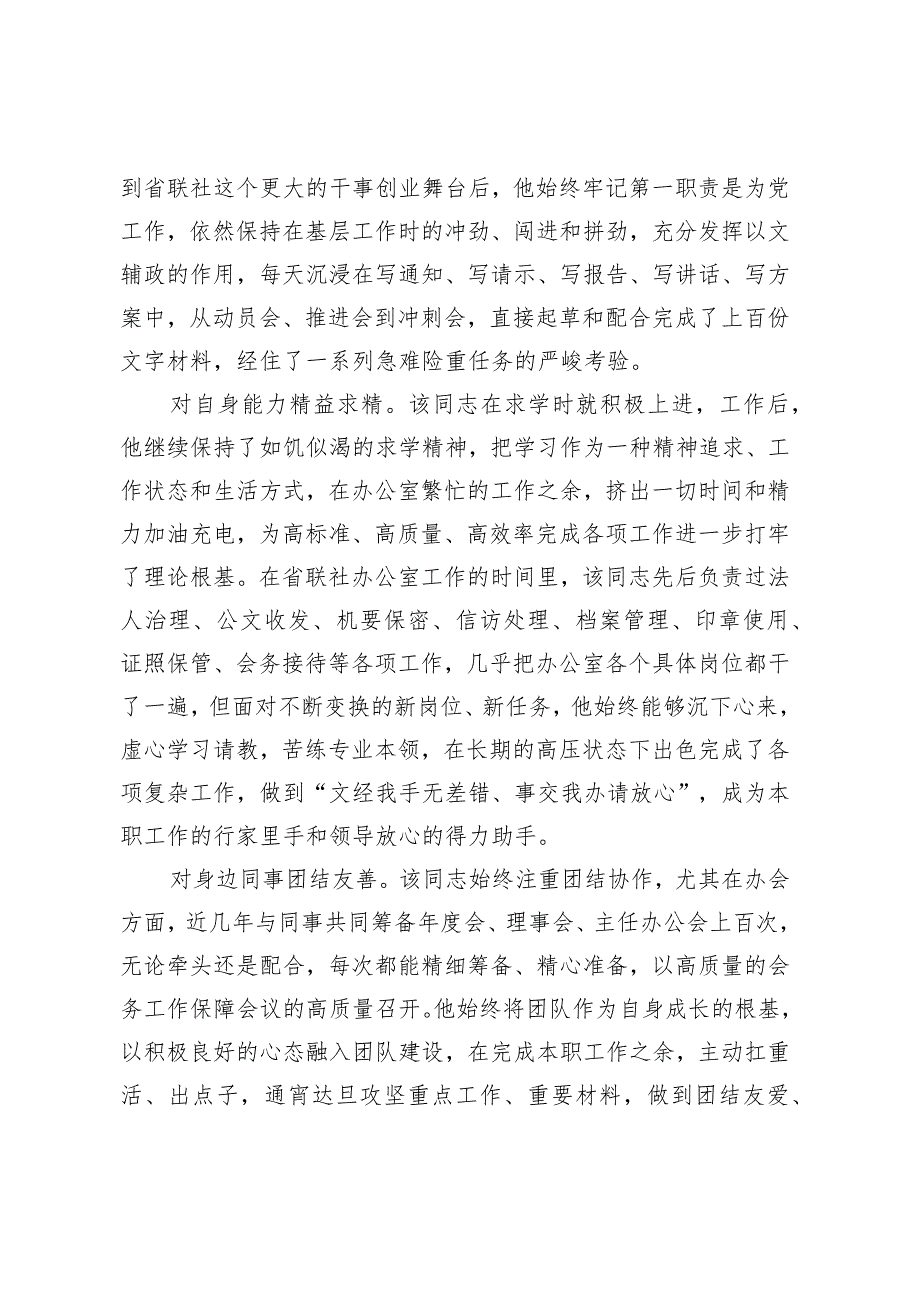 到省联社这个更大的干事创业舞台后，他始终牢记第一职责是为党
工作，依然保持在基层工作时的冲劲、闯进和拼劲，充分发挥以文
辅政的作用，每天沉浸在写通知、写请示、写报告、写讲话、写方
案中，从动员会、推进会到冲刺会，直接起草和配合完成了上百份
文字材料，经住了一系列急难险重任务的严峻考验。
对自身能力精益求精。该同志在求学时就积极上进，工作后，
他继续保持了如饥似渴的求学精神，把学习作为一种精神追求、工
作状态和生活方式，在办公室繁忙的工作之余，挤出一切时间和精
力加油充电，为高标准、高质量、高效率完成各项工作进一步打牢
了理论根基。在省联社办公室工作的时间里，该同志先后负责过法
人治理、公文收发、机要保密、信访处理、档案管理、印章使用、
证照保管、会务接待等各项工作，几乎把办公室各个具体岗位都干
了一遍，但面对不断变换的新岗位、新任务，他始终能够沉下心来，
虚心学习请教，苦练专业本领，在长期的高压状态下出色完成了各
项复杂工作，做到“文经我手无差错、事交我办请放心”，成为本
职工作的行家里手和领导放心的得力助手。
对身边同事团结友善。该同志始终注重团结协作，尤其在办会
方面，近几年与同事共同筹备年度会、理事会、主任办公会上百次，
无论牵头还是配合，每次都能精细筹备、精心准备，以高质量的会
务工作保障会议的高质量召开。他始终将团队作为自身成长的根基，
以积极良好的心态融入团队建设，在完成本职工作之余，主动扛重
活、出点子，通宵达旦攻坚重点工作、重要材料，做到团结友爱、